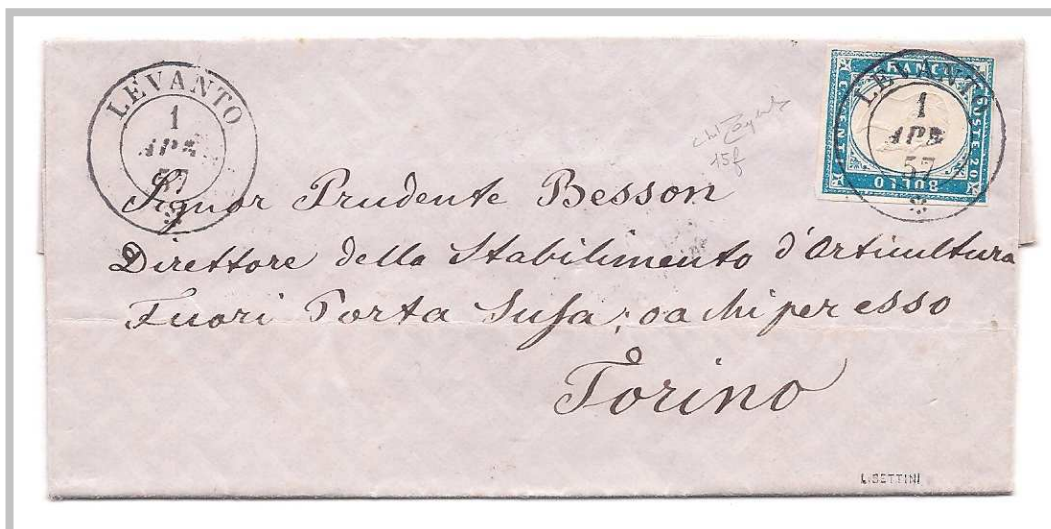 LEVANTO
1
APR
57
FRANCO
C.POSTE 20
BOLLO
CENT
LEVANTO
1
APR
57
15f
Signor Prudente Besson
Direttore dello Stabilimento d'Orticultura
Fuori Porta Susa; o a chi per esso
Torino
L.SETTINI